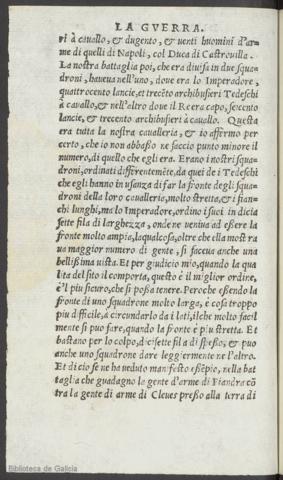 LA GVERRA.
ri à cauallo, & dugento, & uenti huomini d'ar=
me di quelli di Napoli, col Duca di Castrouilla.
La nostra battaglia poi, che era diuisa in due squa=
droni, haueua nell'uno, doue era lo Imperadore,
quattrocento lancie, et trecẽto archibusieri Tedeschi
à cauallo, & nell'altro doue il Re era capo, seicento
lancie, et trecento archibusieri à cauallo. Questa
era tutta la nostra caualleria, & io affermo per
certo, che io non abbaßo ne faccio punto minore il
numero, di quello che egli era. Erano i nostri squa=
droni, ordinati differentemẽte, da quei de i Tedeschi
che egli hanno in usanza di far la fronte degli squa=
droni della loro caualleria, molto stretta, & i fian=
chi lunghi, ma lo Imperadore, ordino i suoi in dicia
sette fila di larghezza, onde ne veniua ad eßere la
fronte molto ampia, la qual cosa, oltre che ella mostra
ua maggior numero di gente, si faceua anche una
bellißima uista. Et per giudicio mio, quando la qua
lità del sito il comporta, questo è il miglior ordine,
è'l piu sicuro, che si poßa tenere. Peroche eßendo la
fronte di uno squadrone molto larga, è cosa troppo
piu difficile, à circundarlo da i lati, ilche molto facil
mente si puo fare, quando la fronte è piu stretta. Et
bastano per lo colpo, diciſette fila di speßo, & puo
anche uno squadrone dare leggiermente ne l'altro.
Et di cio se ne ha ueduto manifesto eßẽpio, nella bat
taglia che guadagno la gente d'arme di Fiandra cõ
tra la gente di arme di Cleues preßo alla terra di
Biblioteca de Galicia